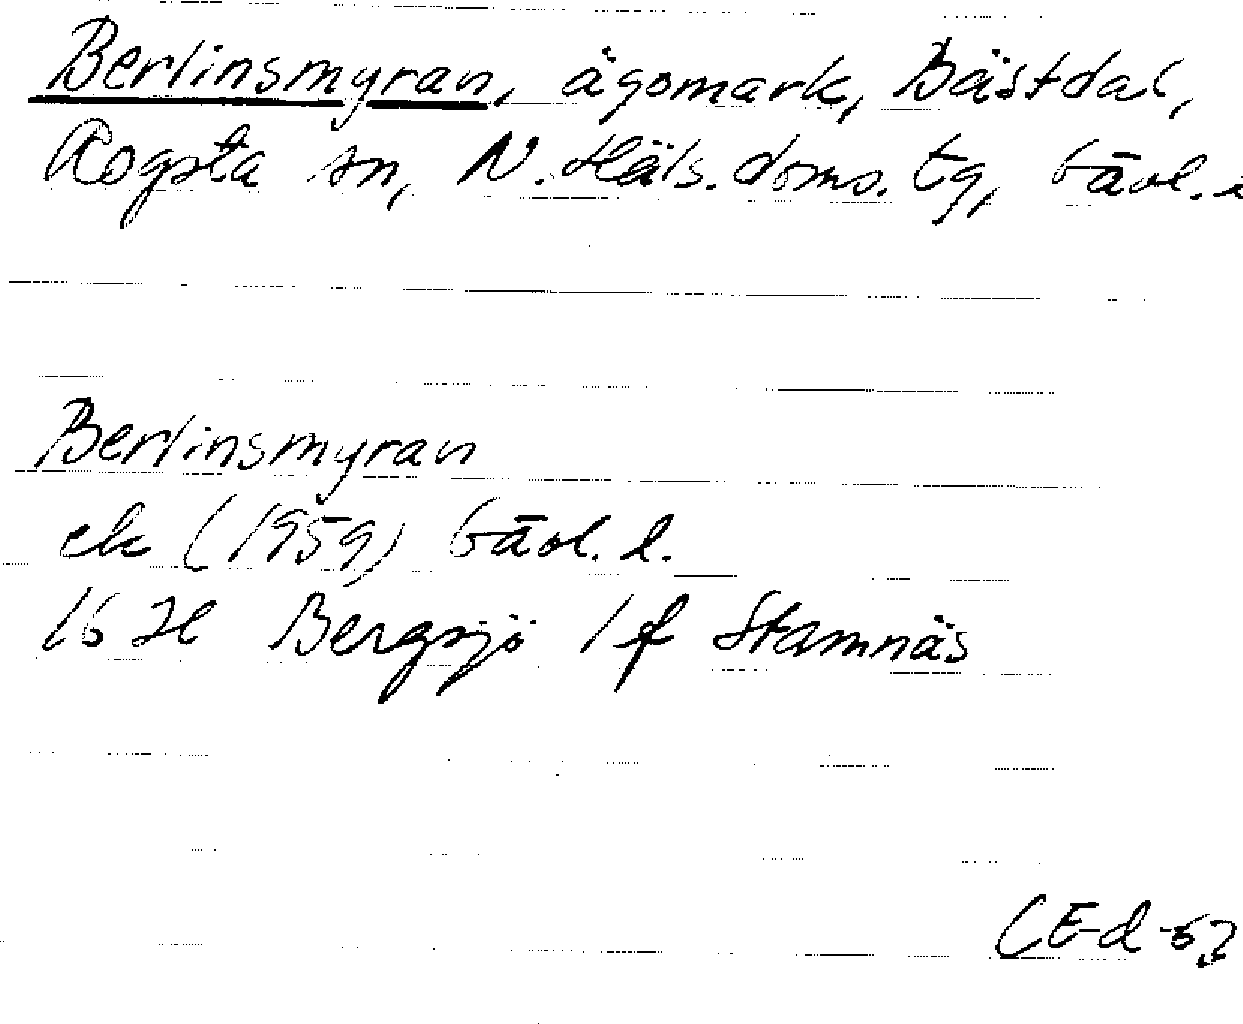 Berlinsmyran, ägomark, Bästdal,
Rogsta sn, N. Häls. doms. tg, Gävl. l
Berlinsmyran
ek (1959) Gävl. l.
16 H Bergsjö 1 f Stamnäs